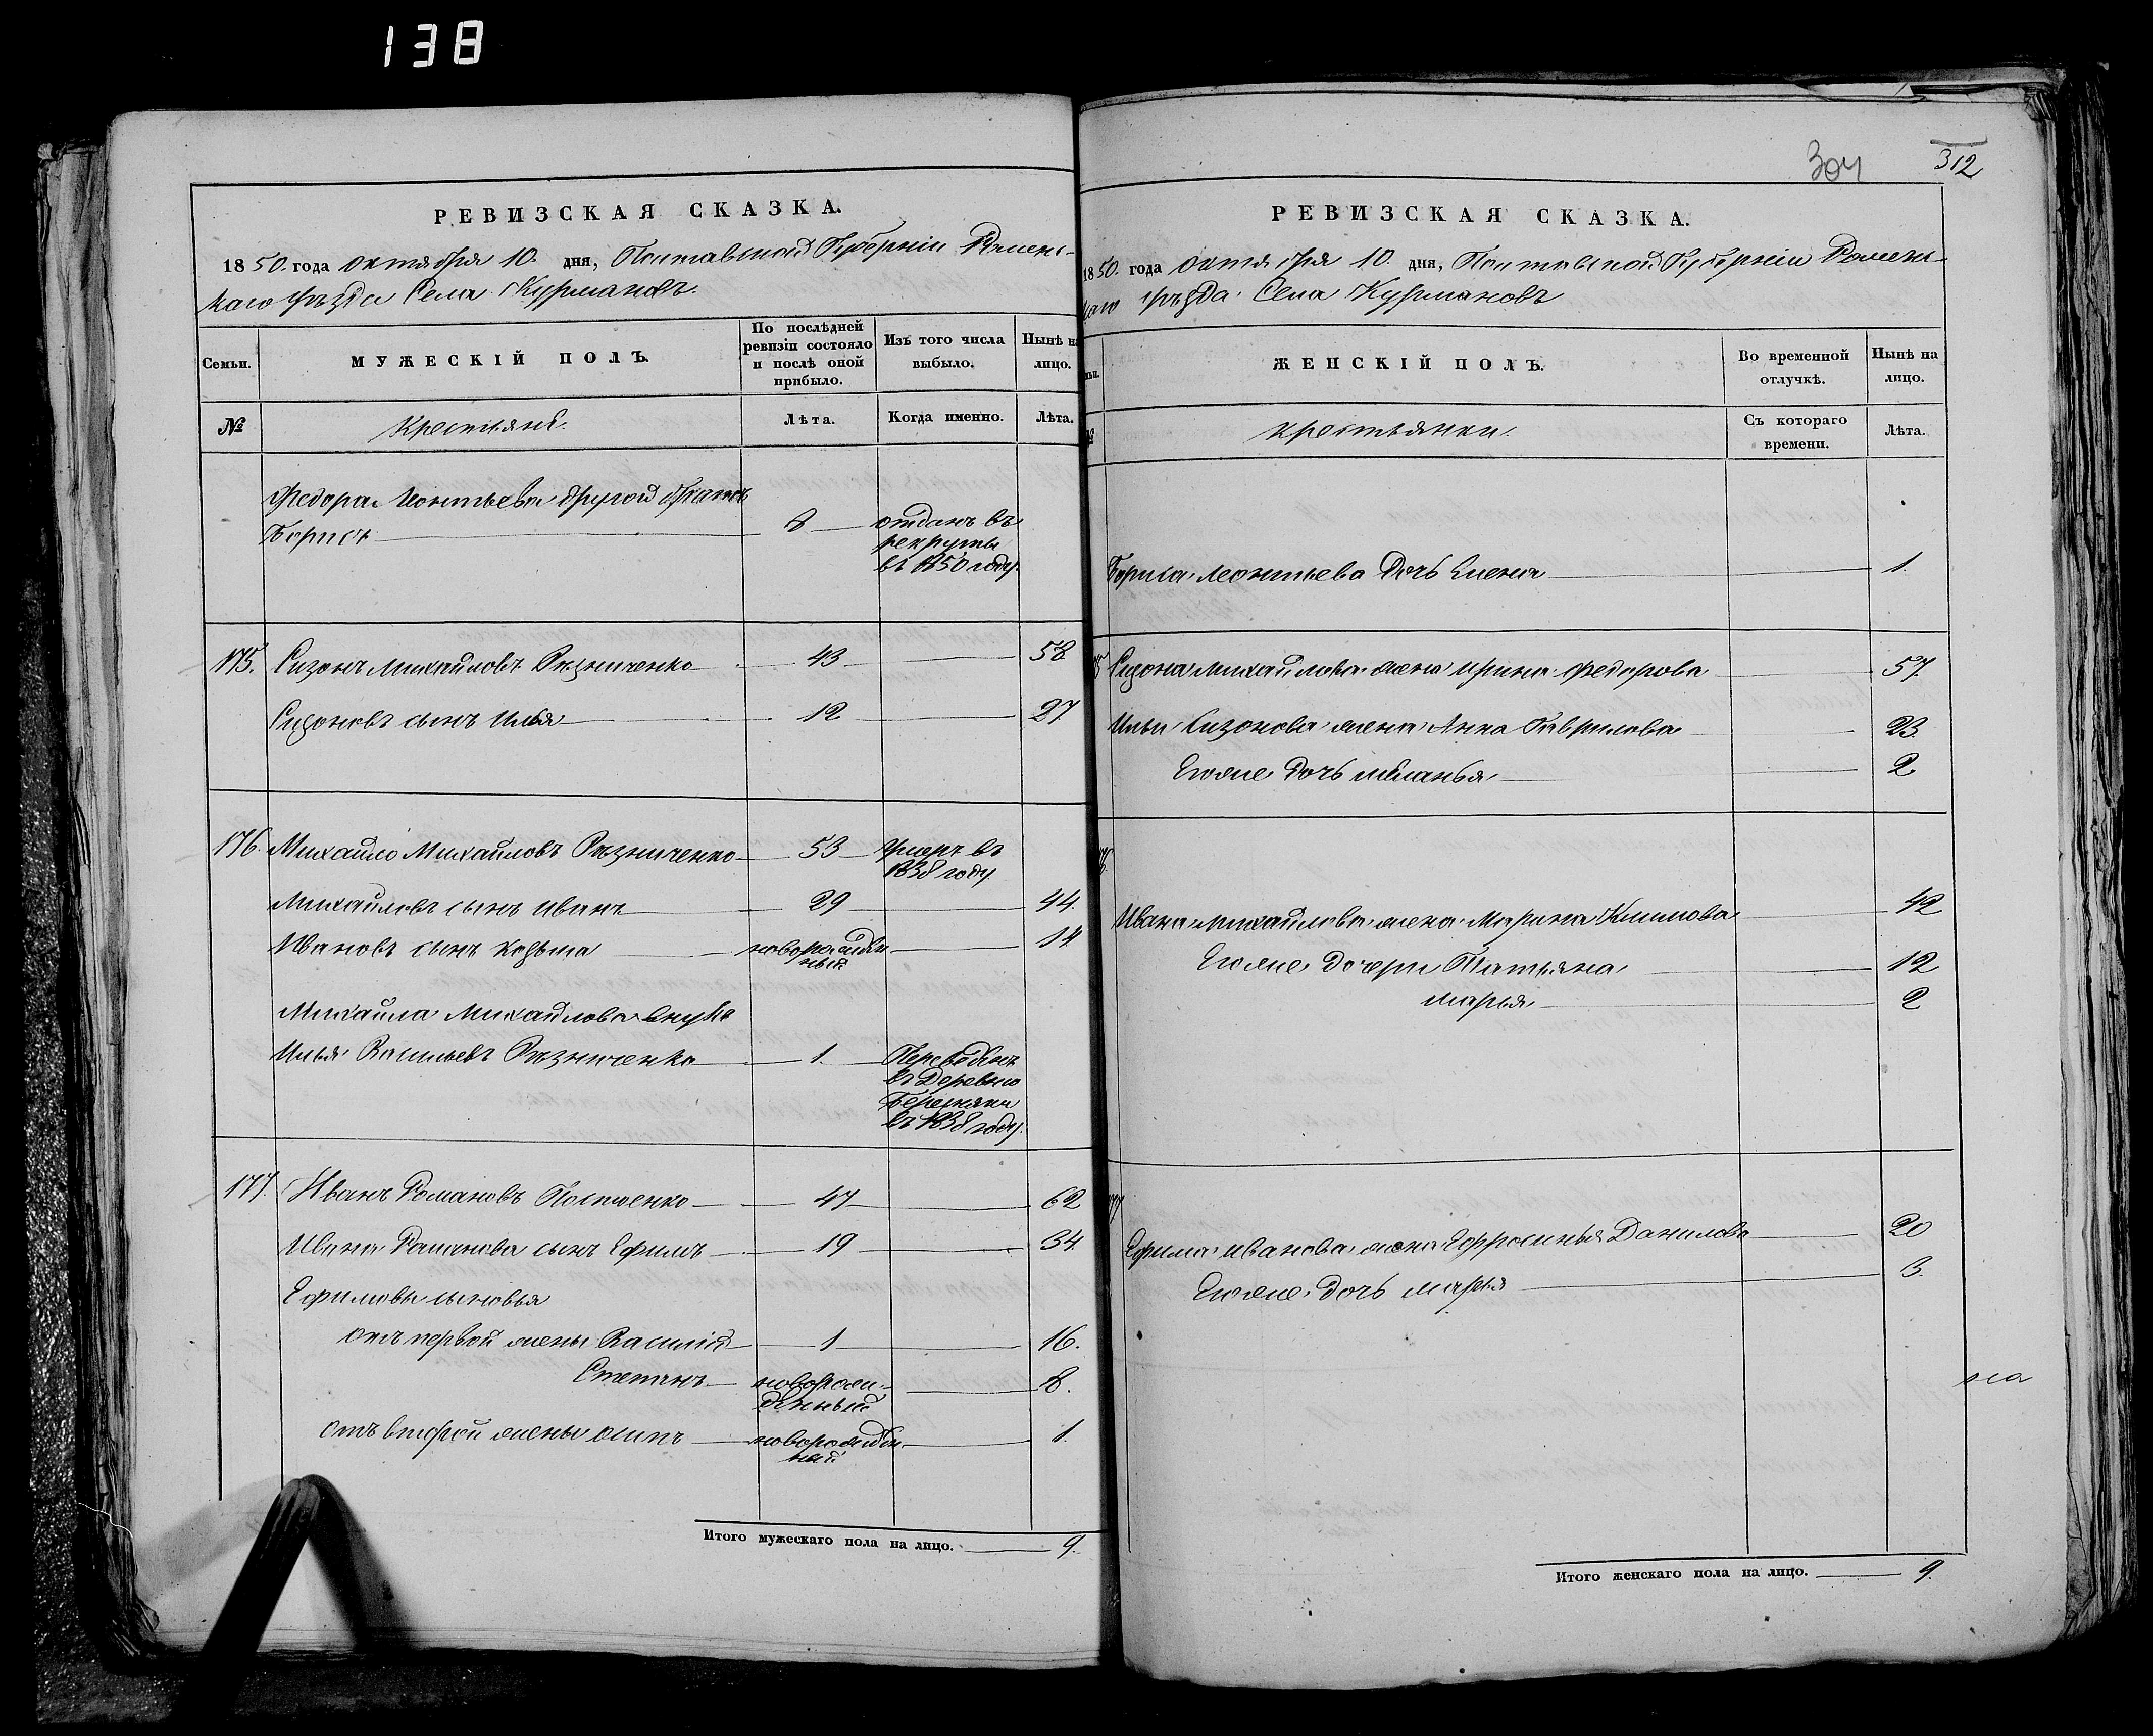 138
РЕВИЗСКАЯ СКАЗКА.
1850. года октября 10. дня, Полтавской Губерніи Ромен-
скаго уѣзда Села Курмановъ.
Семьи.
МУЖЕСКІЙ ПОЛЪ.
По послѣдней
ревизіи состояло
и послѣ оной
прибыло.
Изъ того числа
выбыло.
Нынѣ на
лицо.
№
Крестьяне.
Лѣта.
Когда именно.
Лѣта.
Федора Леонтьева другой братъ
Борисъ 8 отданъ въ
рекруты
въ 1850 году.
175. Сизонъ Михайловъ Рѣзниченко 43 58
Сизоновъ сынъ Илья 12 27
176. Михайло Михайловъ Рѣзниченко 53 умеръ въ
1838 году
Михайловъ сынъ Иванъ 29 44.
Ивановъ сынъ Козьма новорожден-
ный 14
Михайла Михайлова внукъ
Илья Васильевъ Рѣзниченко 1. Переведенъ
въ Деревню
въ 1838 году.
177. Иванъ Романовъ 47 62
Ивана Романова сынъ Ефимъ 19 34
Ефимовы сыновья
отъ первой жены Василій 1 16.
Степанъ новорож-
денный 8.
отъ второй жены Осипъ новорожден-
ный 1.
Итого мужескаго пола на лицо. 9.
304
312
РЕВИЗСКАЯ СКАЗКА.
1850. года октября 10. дня, Полтавской Губерніи Ромен-
скаго уѣзда Села Курмановъ
ЖЕНСКІЙ ПОЛЪ.
Во временной
отлучкѣ.
Нынѣ на
лицо.
№
Крестьянки.
Съ котораго
времени.
Лѣта.
Бориса Леонтьева дочь Елена 1.
Сизона Михайлова жена Ирина Федорова 57
Ильи Сизонова жена Анна Гаврилова 23.
Егоже дочь Меланья 2
Ивана Михайлова жена Марина Климова 42
Егоже дочери Татьяна 12
Марья 2
Ефима Иванова жена Ефросинья Данилова 20
Егоже дочь Марья 3.
на
Итого женскаго пола на лицо. 9.